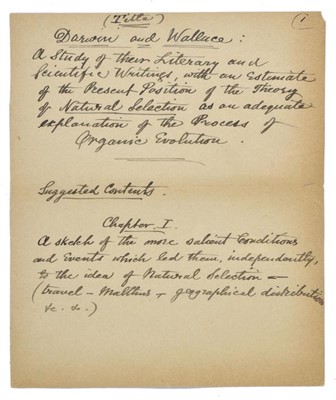 (Title) (1
Darwin and Wallace:
A Study of their Literary and
Scientific Writings, with an Estimate
of the Present Position of the Theory
of Natural Selection as an adequate
explanation of the Process of
Organic Evolution.
Suggested Contents.
Chapter I.
A sketch of the more salient Conditions
and Events which led them, independently,
to the idea of Natural Selection –
(travel – Malthus + geographical distribution
&c. &c.)